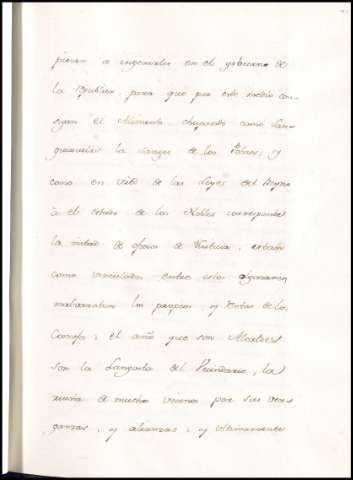 pieran à ingerirles en el gobierno de
la Republica, para que por este medio con-
sigan el Alimento, chupando como San-
guixuelas la Sangre de los Pobres; y
como en virtd de las Leyes del Reyno
à el estado de los Nobles corresponde
la mitad de oficios de Justicia, estan
como vinculados entre
malbaratan los propios, y Rentas de lo
Concejo; el año que son Alcaldes
son la Langosta del Vecindario, la
ruina de muchos vecinos por sus ven-
ganzas, y alianzas, y ultimamente